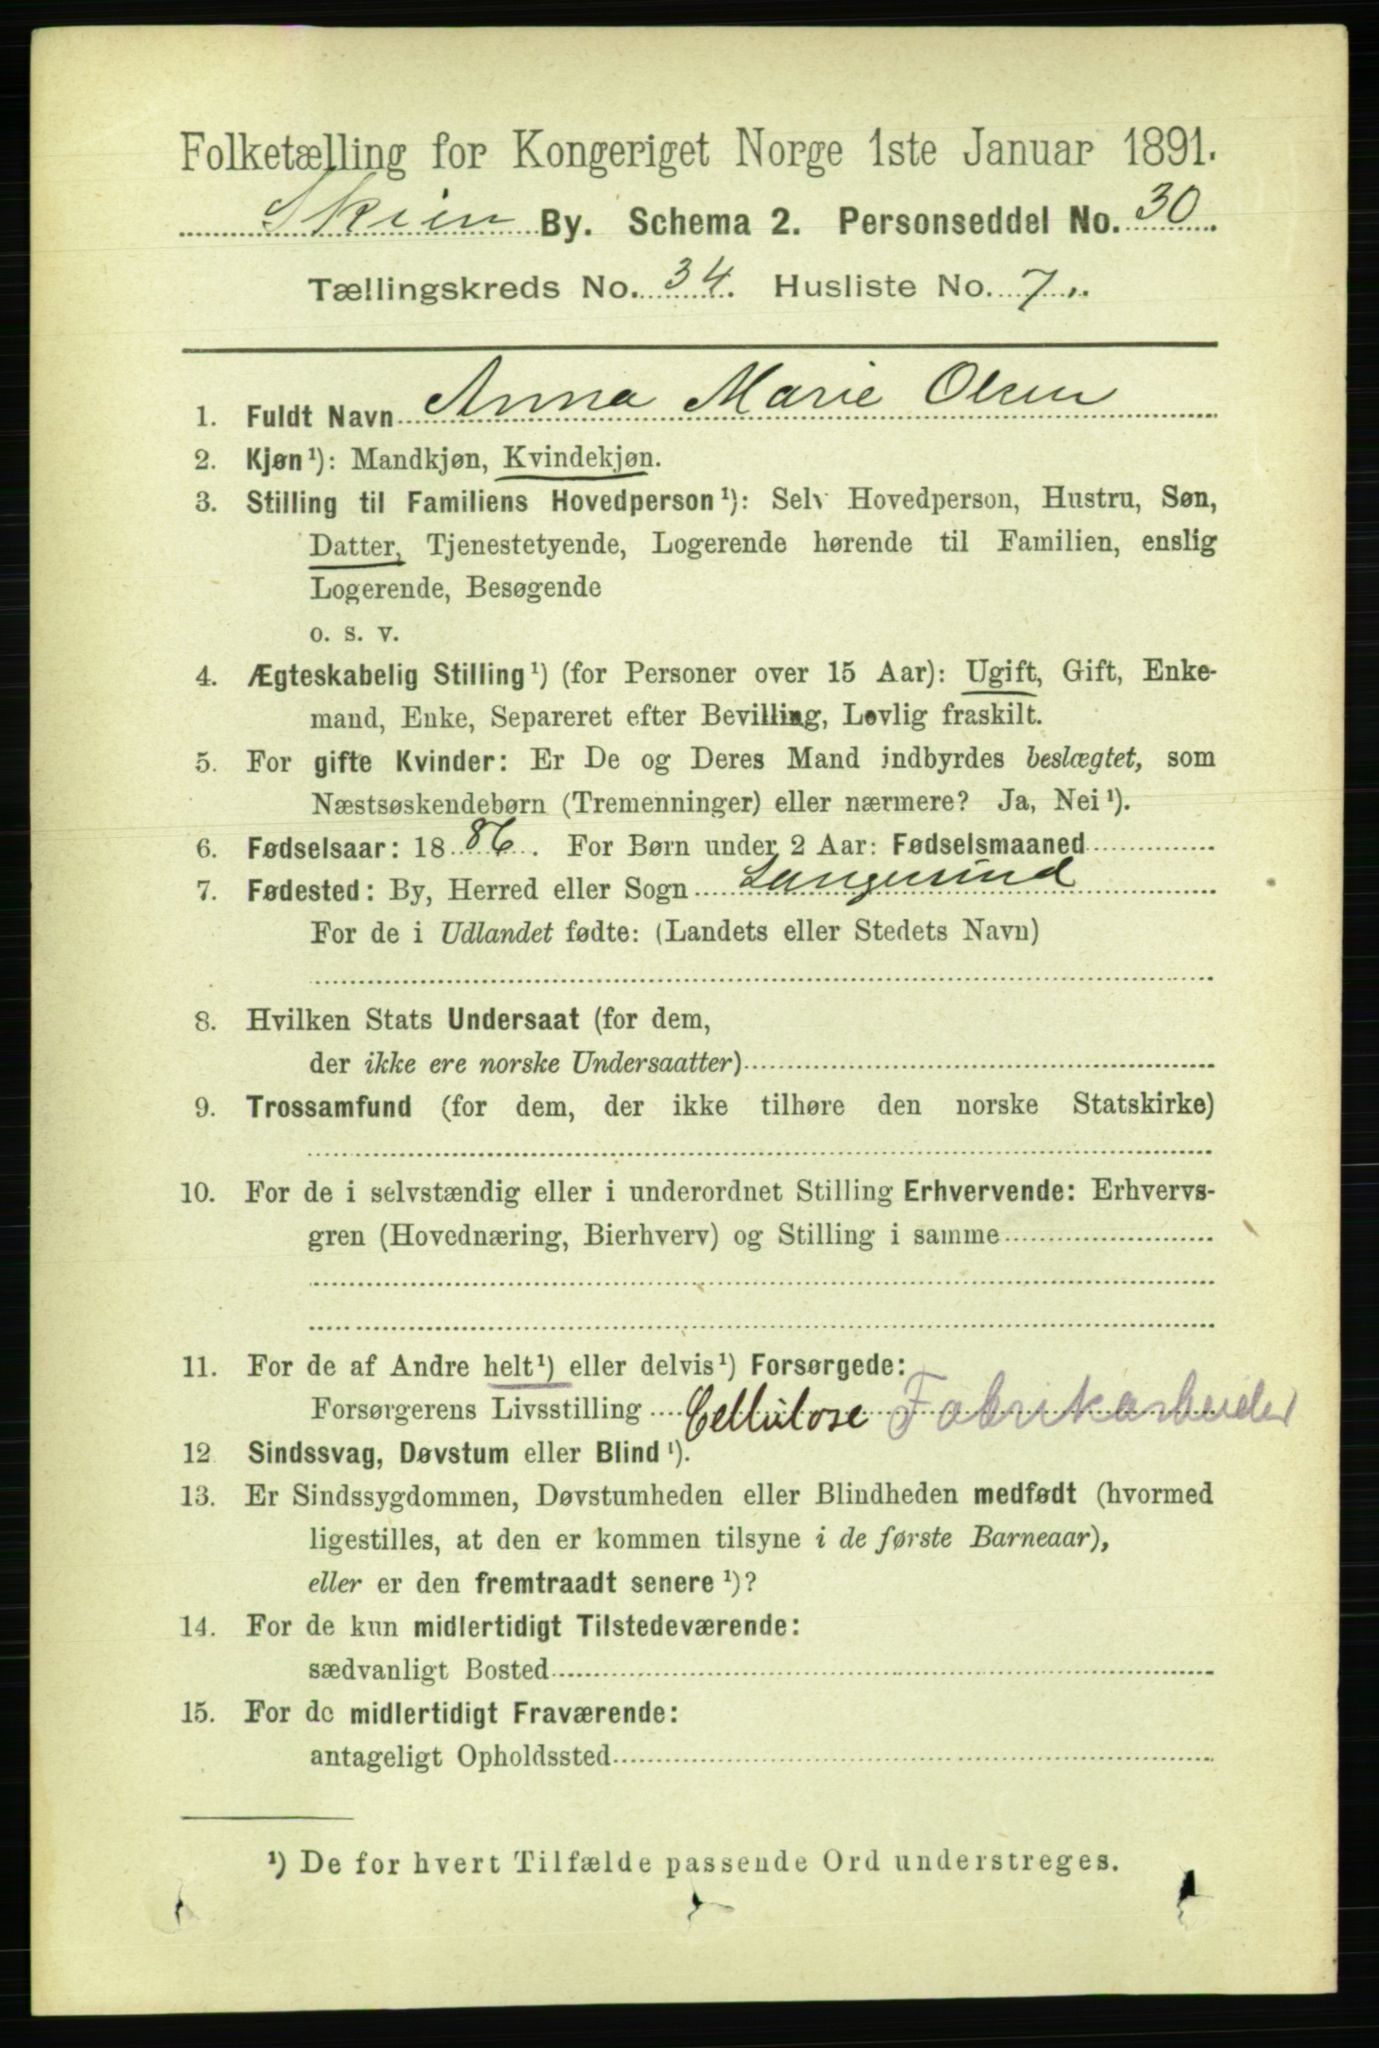 Folketælling for Kongeriget Norge 1ste Januar 1891.
Skien By. Schema 2. Personseddel No. 30.
Tællingskreds No. 34. Husliste No. 7.
1. Fuldt Navn Anna Marie Olsen
2. Kjøn¹): Mandkjøn, Kvindekjøn.
3. Stilling til Familiens Hovedperson¹): Selv Hovedperson, Hustru, Søn,
Datter, Tjenestetyende, Logerende hørende til Familien, enslig
Logerende, Besøgende
o. s. v.
4. Ægteskabelig Stilling¹) (for Personer over 15 Aar): Ugift, Gift, Enke-
mand, Enke, Separeret efter Bevilling, Lovlig fraskilt.
5. For gifte Kvinder: Er De og Deres Mand indbyrdes beslægtet, som
Næstsøskendebørn (Tremenninger) eller nærmere? Ja, Nei¹).
6. Fødselsaar: 1886. For Børn under 2 Aar: Fødselsmaaned
7. Fødested: By, Herred eller Sogn Langesund
For de i Udlandet fødte: (Landets eller Stedets Navn)
8. Hvilken Stats Undersaat (for dem,
der ikke ere norske Undersaatter)
9. Trossamfund (for dem, der ikke tilhøre den norske Statskirke)
10. For de i selvstændig eller i underordnet Stilling Erhvervende: Erhvervs-
gren (Hovednæring, Bierhverv) og Stilling i samme
11. For de af Andre helt¹) eller delvis¹) Forsørgede:
Forsørgerens Livsstilling Cellulose Fabrikarbeider
12 Sindssvag, Døvstum eller Blind¹).
13. Er Sindssygdommen, Døvstumheden eller Blindheden medfødt (hvormed
ligestilles, at den er kommen tilsyne i de første Barneaar),
eller er den fremtraadt senere¹)?
14. For de kun midlertidigt Tilstedeværende:
sædvanligt Bosted
15. For de midlertidigt Fraværende:
antageligt Opholdssted
¹) De for hvert Tilfælde passende Ord understreges.